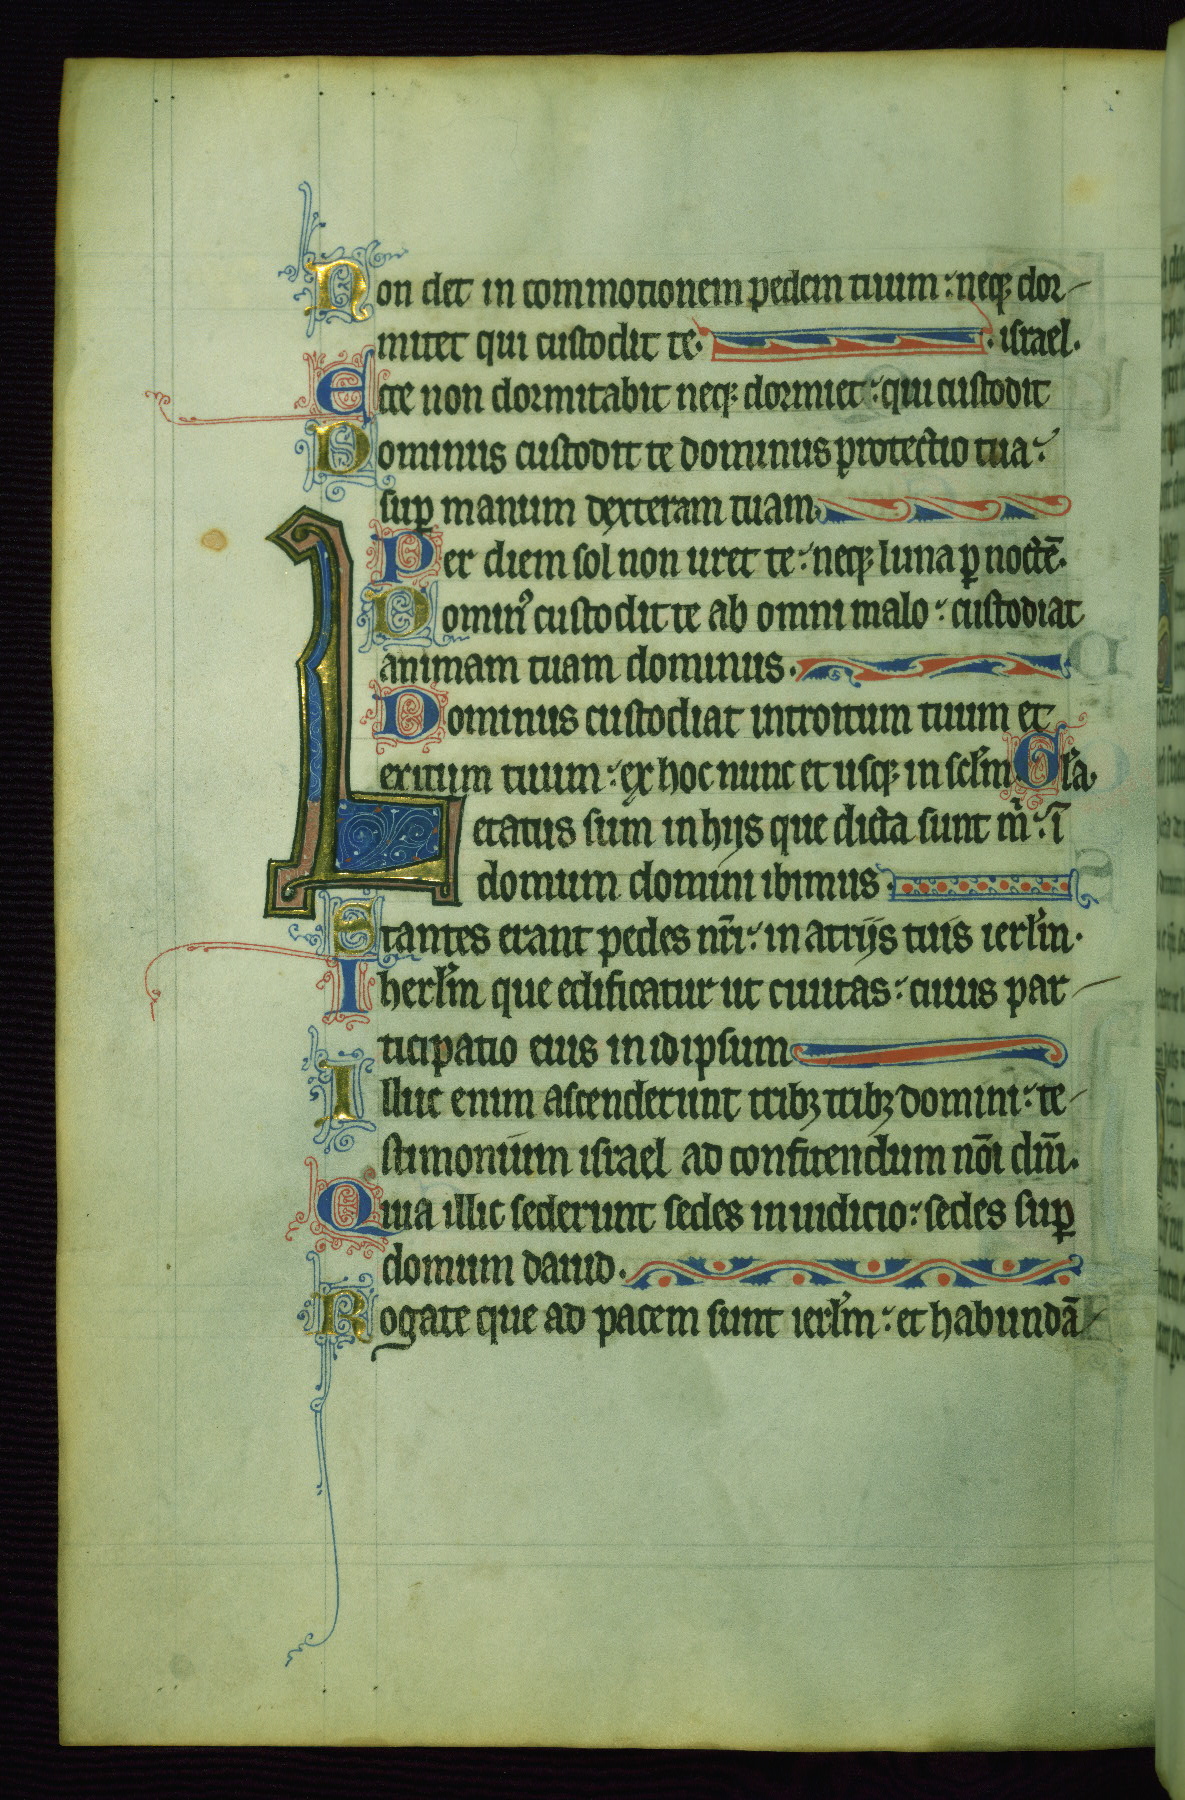 Non det in commotionem pedem tuum: neq; dor
mitet qui custodit te. israel.
Ecce non dormitabit neq; dormiet: qui custodit
Dominus custodit te dominus protectio tua:
sup manum dexteram tuam.
Per diem sol non uret te: neq; luna p noctē.
Domin⁹ custodit te ab omni malo: custodiat
animam tuam dominus.
Dominus custodiat introitum tuum et
exitum tuum: ex hoc nunc et usq; in sclm Gla.
Letatus sum in hijs que dicta sunt m̃: ī
domum domini ibimus.
Stantes erant pedes nr̄i: in atrijs tuis ierlm.
Iherlm que edificatur ut ciuitas: cuius par
ticipatio eius in idipsum
Illuc enim ascenderunt tribꝫ tribꝫ domini: te
stimonium israel ad confitendum nōi dn̄i.
Quia illic sederunt sedes in iudicio: sedes sup
domum dauid.
Rogate que ad pacem sunt ierlm: et habundā